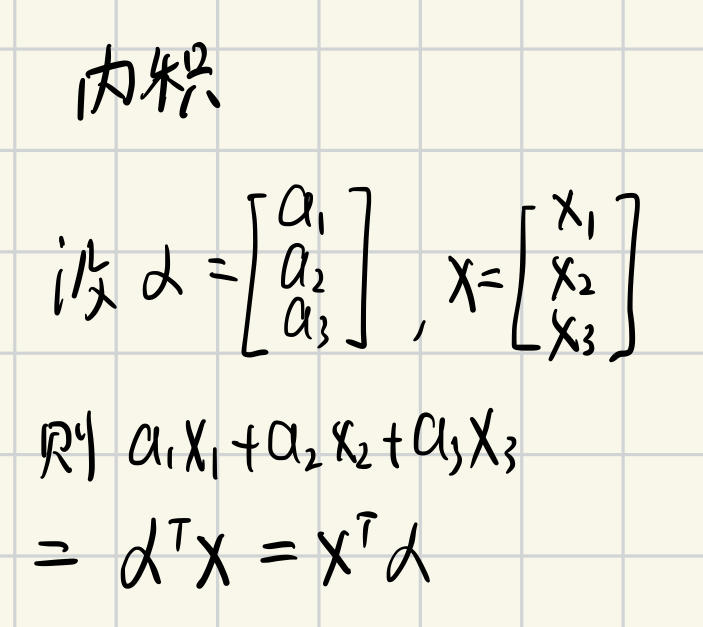 内积
设 α = [a₁ a₂ a₃], x = [x₁ x₂ x₃]
则 a₁x₁ + a₂x₂ + a₃x₃
= αᵀx = xᵀα